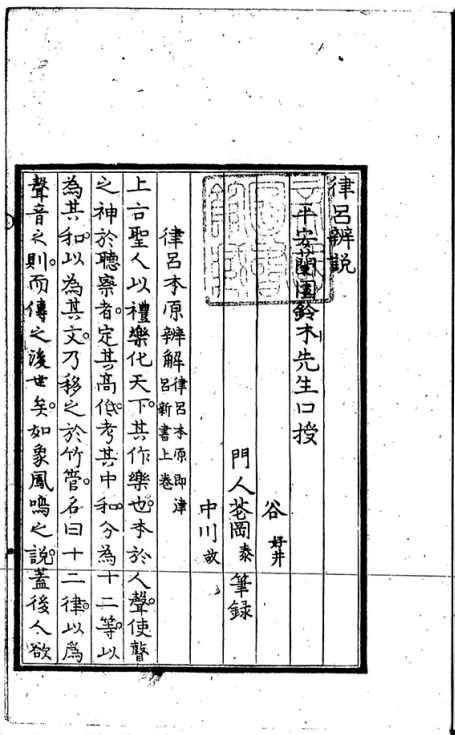 律呂辨説
平安蘭園鈴木先生口授
谷 好井
門人芲岡泰 筆録
中川故
律呂本原辨解 律呂本原即津
呂新書上卷
上古聖人以禮樂化天下。其作樂也。本於人聲。使瞽
之神於聽察者。定其高低。考其中和。分為十二等。以
為其和。以為其文。乃移之於竹管。名曰十二律。以爲
聲音之則。而傳之後世矣。如象鳳鳴之説。蓋後人欲